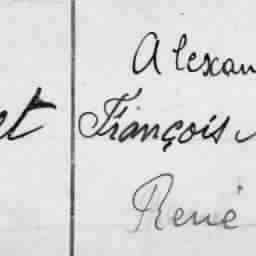 Alexan
et François
René